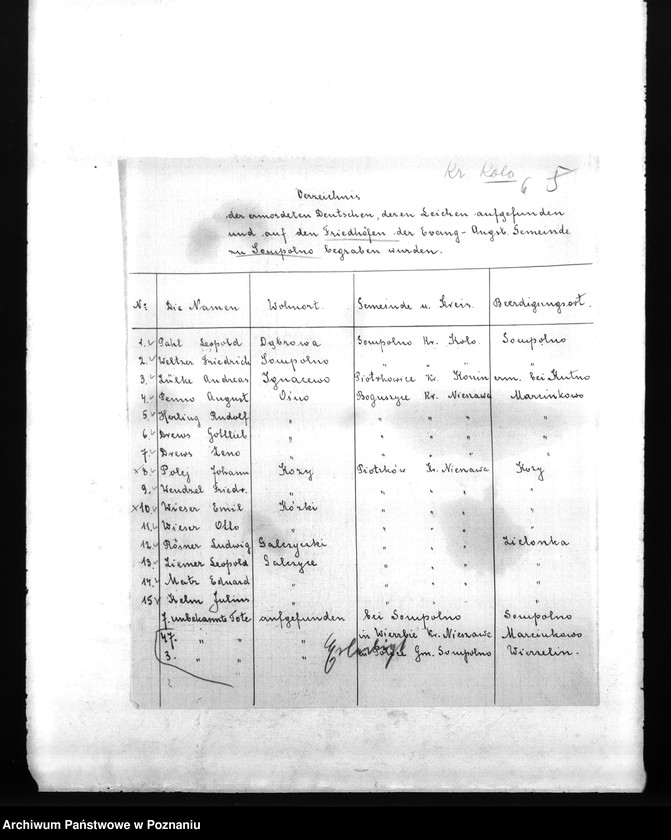 Kr. Kolo
6 5
Verzeichnis
der ermordeten Deutschen, deren Leichen aufgefunden
und auf den Friedhöfen der Evang-Augsb. Gemeinde
zu Sompolno begraben wurden.
No Die Namen Wohnort. Gemeinde u. Kreis. Beerdigungsort.
1. Pahl Leopold Dąbrowa Sompolno Kr. Kolo. Sompolno
2. Weltzer Friedrich Sompolno " " " "
3. Lülke Andreas Ignacewo Piotrkowice Kr. Konin erm. bei Kutno
4. Penno August Oino Boguszyce Kr. Nieszawa Marcinkowo
5. Herling Rudolf " " " " "
6. Drews Gottlieb " " " " "
7. Drews Zeno " " " " "
x 8. Polej Johann Kozy Piotrków Kr. Nieszawa Kozy
9. Wendzel Friedr. " " " " "
x 10. Wieser Emil Kózki " " " "
11. Wieser Otto " " " " "
12. Rösner Ludwig Galczycki " " " Zielonka
13. Ziemer Leopold Galczyce " " " "
14. Matz Eduard " " " " "
15. Kelm Julius " " " " "
7. unbekannte Tote aufgefunden bei Sompolno Sompolno
47. " " " in Wierzbie Kr. Nieszawa Marcinkowo
3. " " " Gm. Sompolno
Erledigt
Archiwum Państwowe w Poznaniu